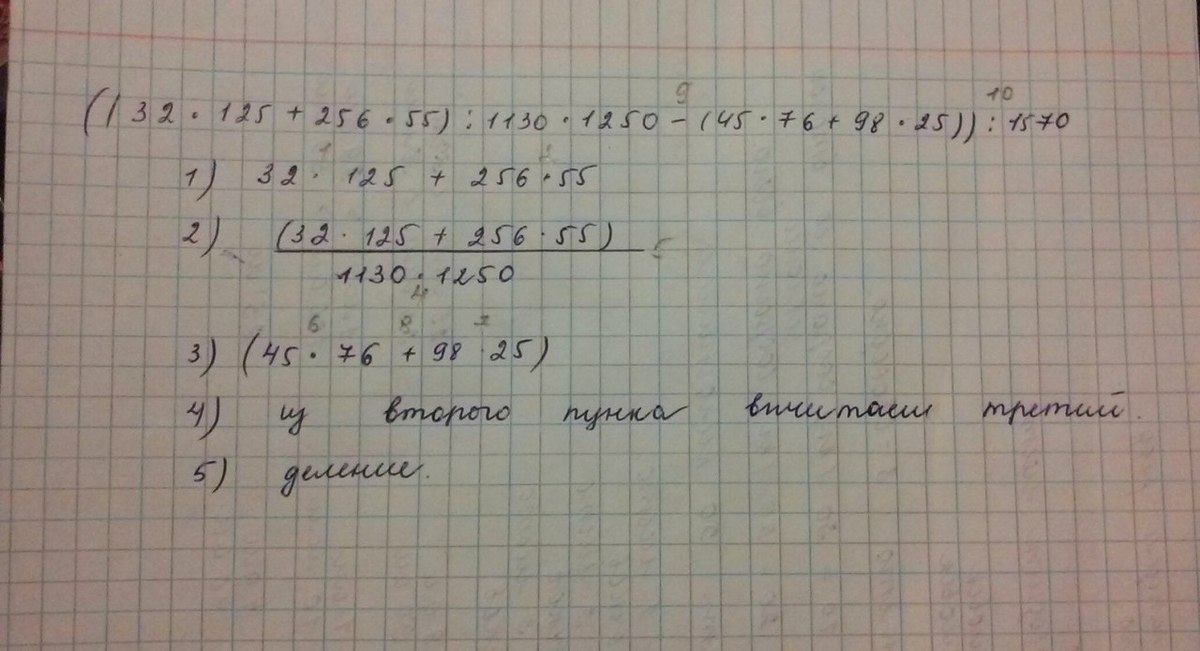 9 10
((32 · 125 + 256 · 55) : 1130 · 1250 - (45 · 76 + 98 · 25)) : 1570
1) 32 · 125 + 256 · 55
2) (32 · 125 + 256 · 55) 5
1130 · 1250
4
6 8 7
3) (45 · 76 + 98 · 25)
4) из второго пунка вычитаем третий.
5) деление.